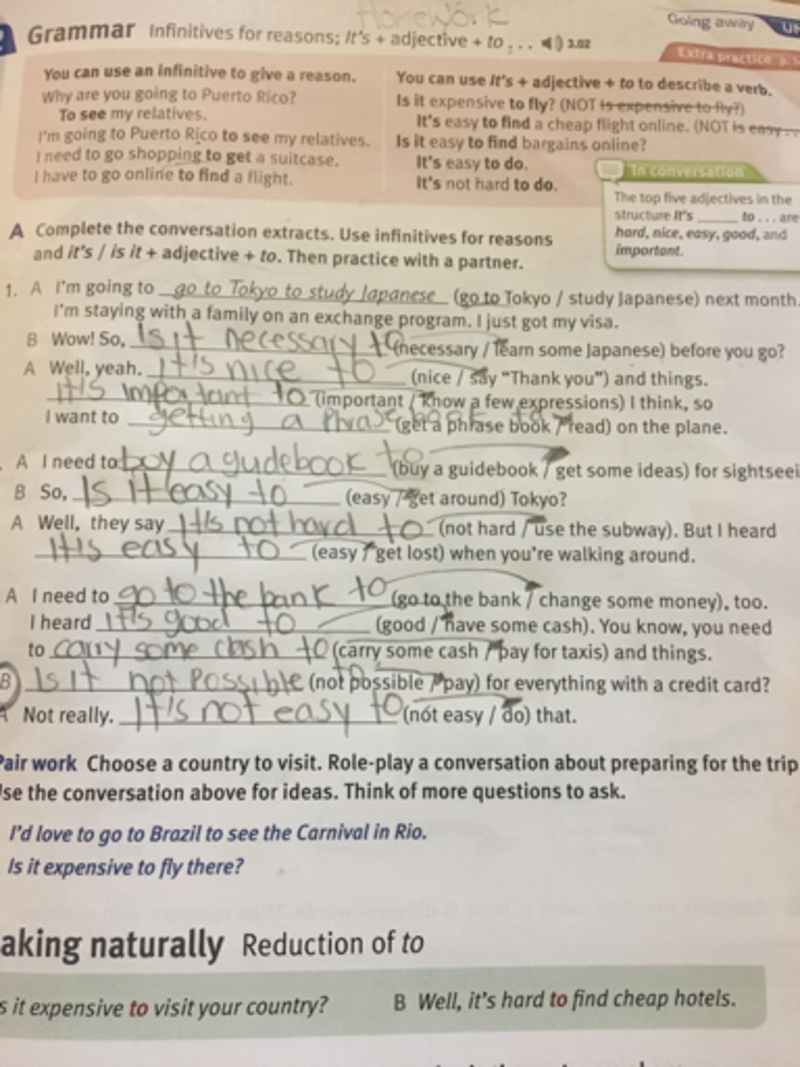 Homework
Grammar Infinitives for reasons; It's + adjective + to . . . 3.02
Going away
Extra practice
You can use an infinitive to give a reason.
Why are you going to Puerto Rico?
To see my relatives.
I'm going to Puerto Rico to see my relatives.
I need to go shopping to get a suitcase.
I have to go online to find a flight.
You can use It's + adjective + to to describe a verb.
Is it expensive to fly? (NOT Is expensive to fly?)
It's easy to find a cheap flight online. (NOT Is easy . . .
Is it easy to find bargains online?
It's easy to do.
It's not hard to do.
In conversation
The top five adjectives in the
structure It's ____ to . . . are
hard, nice, easy, good, and
important.
A Complete the conversation extracts. Use infinitives for reasons
and it's / is it + adjective + to. Then practice with a partner.
1. A I'm going to go to Tokyo to study Japanese (go to Tokyo / study Japanese) next month.
I'm staying with a family on an exchange program. I just got my visa.
B Wow! So, Is it necessary to (necessary / learn some Japanese) before you go?
A Well, yeah. It's nice to (nice / say "Thank you") and things.
It's important to (important / know a few expressions) I think, so
I want to getting a phrase book to (get a phrase book / read) on the plane.
A I need to boy a gudebook to (buy a guidebook / get some ideas) for sightseei
B So, Is it easy to (easy / get around) Tokyo?
A Well, they say It's not hard to (not hard / use the subway). But I heard
It's easy to (easy / get lost) when you're walking around.
A I need to go to the bank to (go to the bank / change some money), too.
I heard It's good to (good / have some cash). You know, you need
to carry some cash to (carry some cash / pay for taxis) and things.
B Is it not possible to (not possible / pay) for everything with a credit card?
A Not really. It's not easy to (not easy / do) that.
Pair work Choose a country to visit. Role-play a conversation about preparing for the trip
Use the conversation above for ideas. Think of more questions to ask.
I'd love to go to Brazil to see the Carnival in Rio.
Is it expensive to fly there?
aking naturally Reduction of to
s it expensive to visit your country?
B Well, it's hard to find cheap hotels.